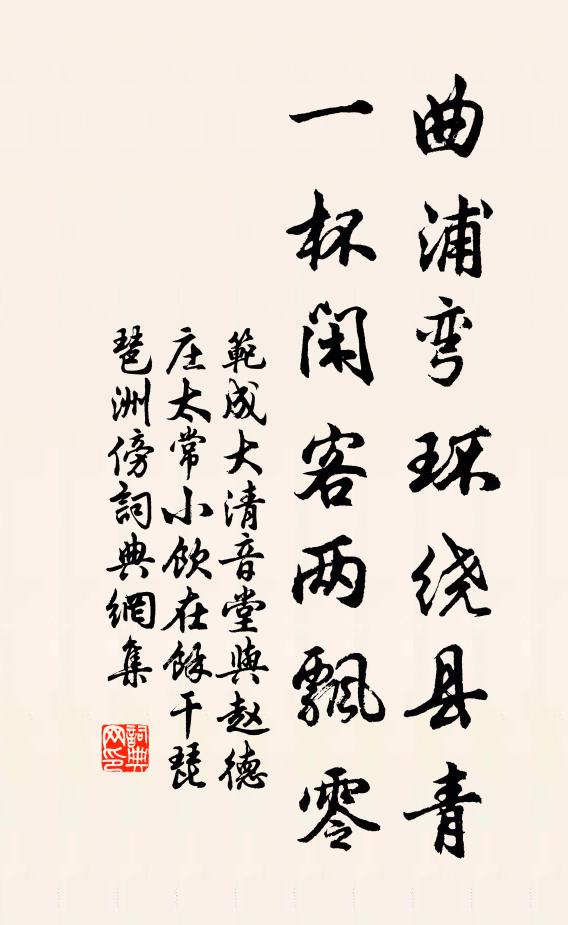 曲浦弯环绕县青
一杯闲客两飘零
範成大清音堂與赵德
庄太常小饮在餘干琵
琶洲傍詞典網集
詞典
网印